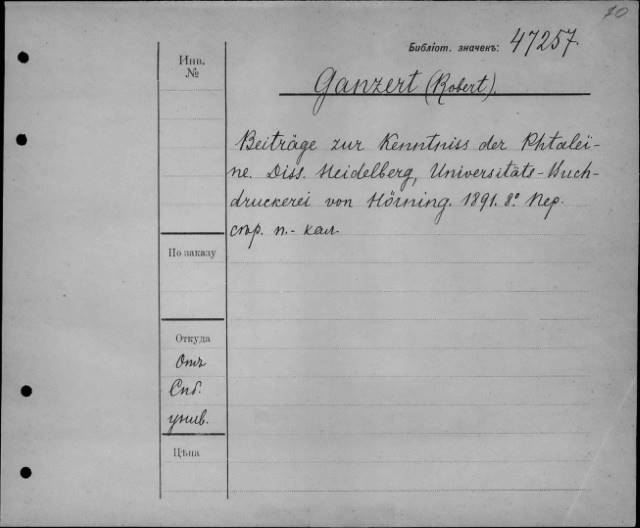 70
Библіот. значекъ: 47257.
Инв.
№
Ganzert (Robert).
Beiträge zur Kenntniss der Phtaleï-
ne. Diss. Heidelberg, Universitäts-Buch-
druckerei von Hörning. 1891. 8° Пер.
стр. п.- кал.
По заказу
Откуда
Отъ
Спб.
унив.
Цѣна